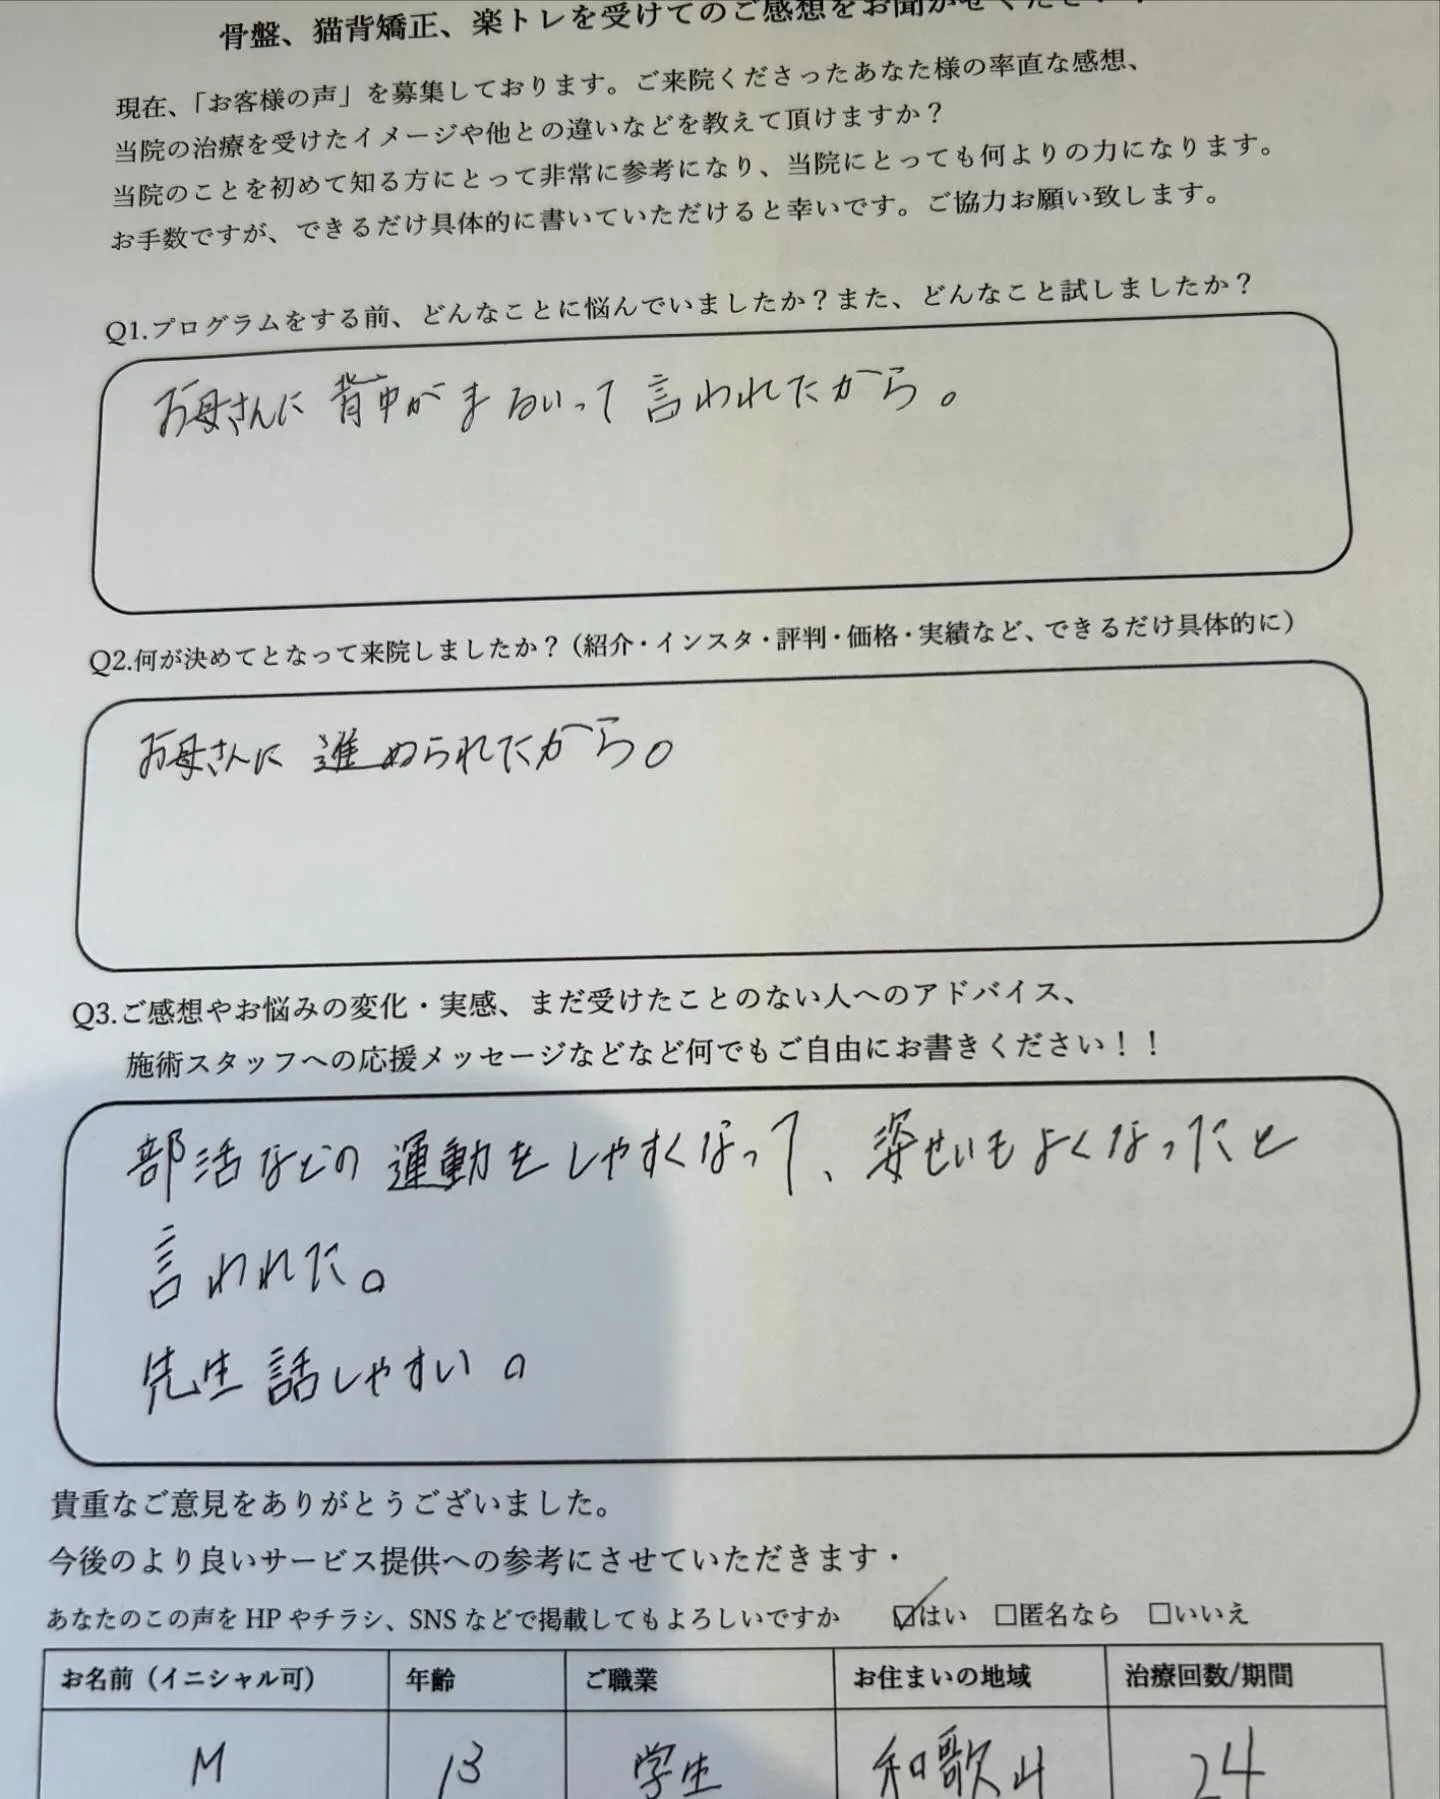 骨盤、猫背矯正、楽トレを受けてのご感想をお聞かせください！
現在、「お客様の声」を募集しております。ご来院くださったあなた様の率直な感想、
当院の治療を受けたイメージや他との違いなどを教えて頂けますか？
当院のことを初めて知る方にとって非常に参考になり、当院にとっても何よりの力になります。
お手数ですが、できるだけ具体的に書いていただけると幸いです。ご協力お願い致します。
Q1.プログラムをする前、どんなことに悩んでいましたか？また、どんなこと試しましたか？
お母さんに背中がまるいって言われたから。
Q2.何が決めてとなって来院しましたか？（紹介・インスタ・評判・価格・実績など、できるだけ具体的に）
お母さんに進められたから。
Q3.ご感想やお悩みの変化・実感、まだ受けたことのない人へのアドバイス、
施術スタッフへの応援メッセージなどなど何でもご自由にお書きください！！
部活などの運動をしやすくなって、姿せいもよくなったと
言われた。
先生話しやすい。
貴重なご意見をありがとうございました。
今後のより良いサービス提供への参考にさせていただきます・
あなたのこの声を HP やチラシ、SNS などで掲載してもよろしいですか ☑はい □匿名なら □いいえ
お名前（イニシャル可） 年齢 ご職業 お住まいの地域 治療回数/期間
M 13 学生 和歌山 24